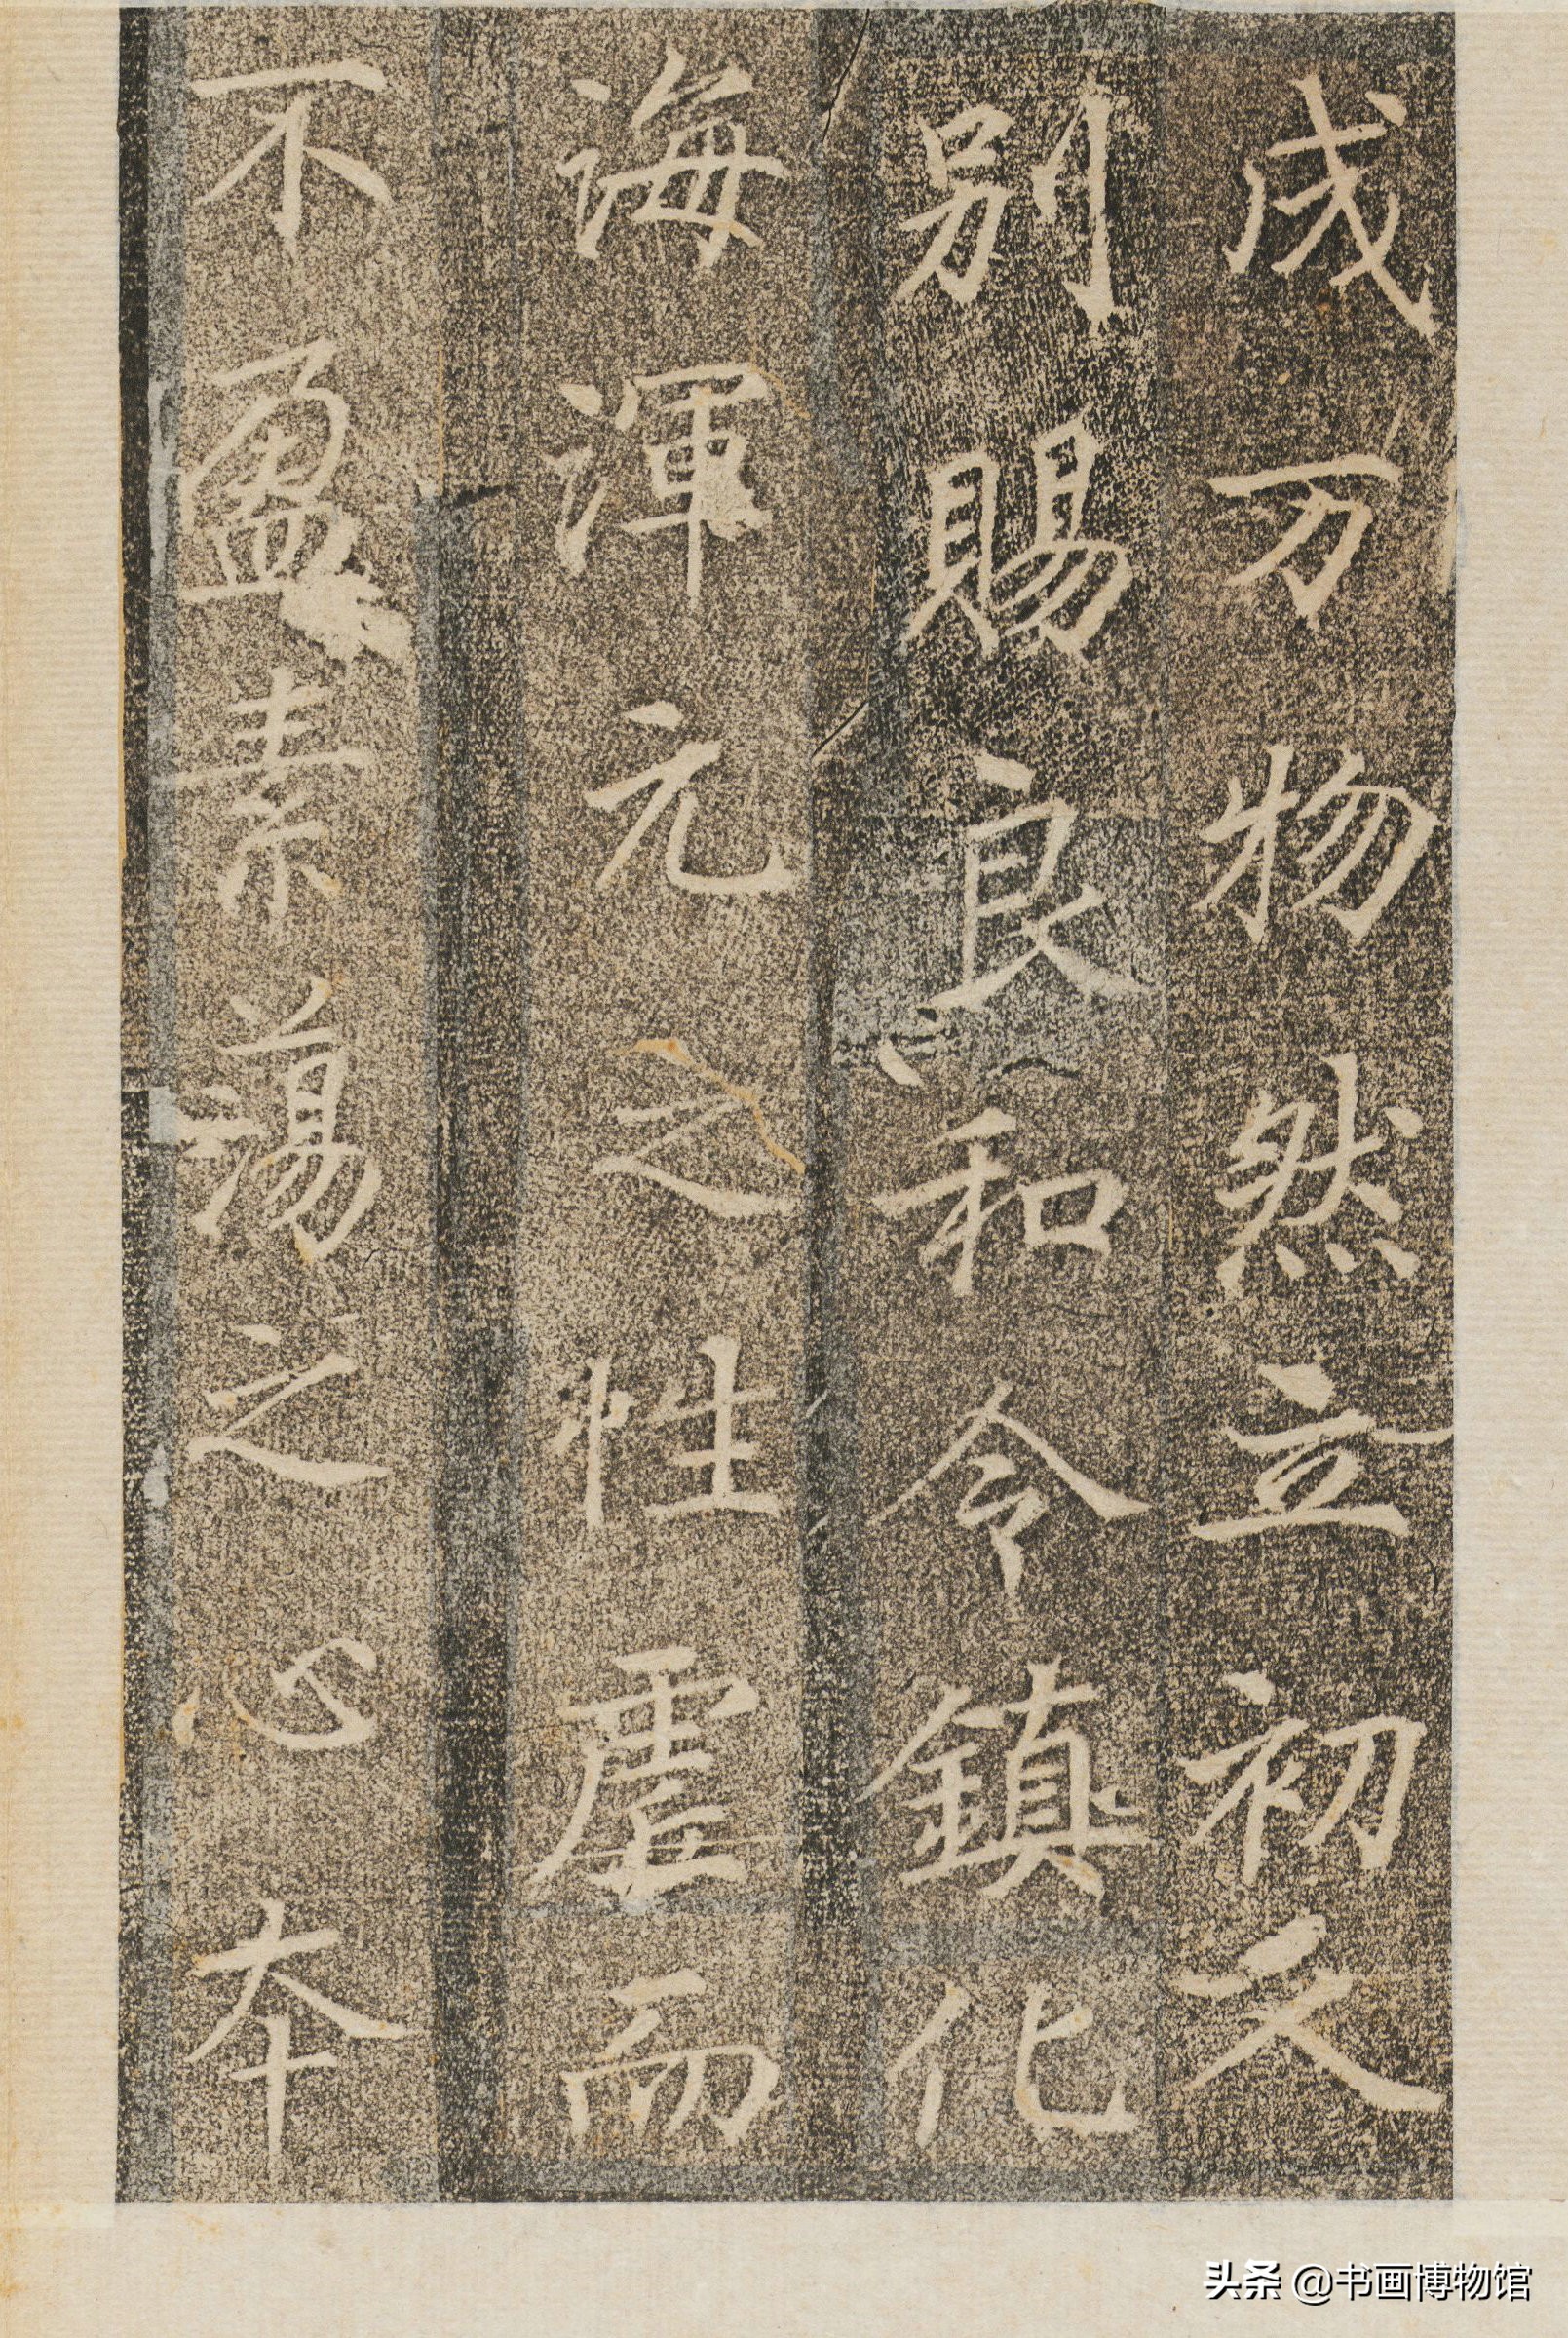 成万物然立初文
别賜良和令鎮化
海渾元之性虚而
不盈素蕩之心本
头条 @书画博物馆